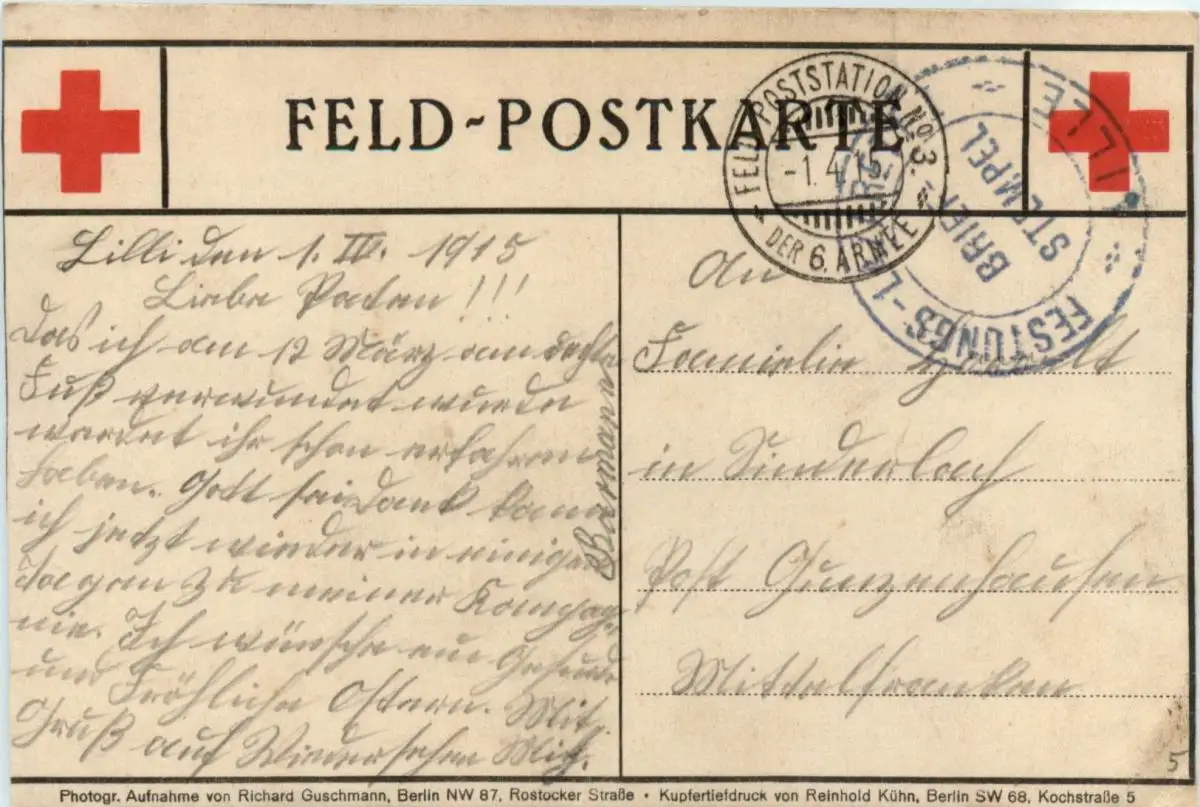 FELD-POSTKARTE
FELD-POSTSTATION No. 3.
-1.4.15
DER 6. ARMEE
FESTUNGS-L
LILLE
BRIEF
STEMPEL
Lilli den 1. IV. 1915
Liebe Paten!!!
Das ich am 12 März am rechten
Fuß verwundet wurde
werdet ihr schon erfahren
haben. Gott sei Dank kann
ich jetzt wieder in einigen
Tagen zu meiner Kompag-
nie. Ich wünsche eue Gesunde
und Fröhliche Ostern. Mit
Gruß auf Wiedersehen Mich.
An
Familie
in Sinderlach
Post Gunzenhausen
Mittelfranken
5
Photogr. Aufnahme von Richard Guschmann, Berlin NW 87, Rostocker Straße • Kupfertiefdruck von Reinhold Kühn, Berlin SW 68, Kochstraße 5